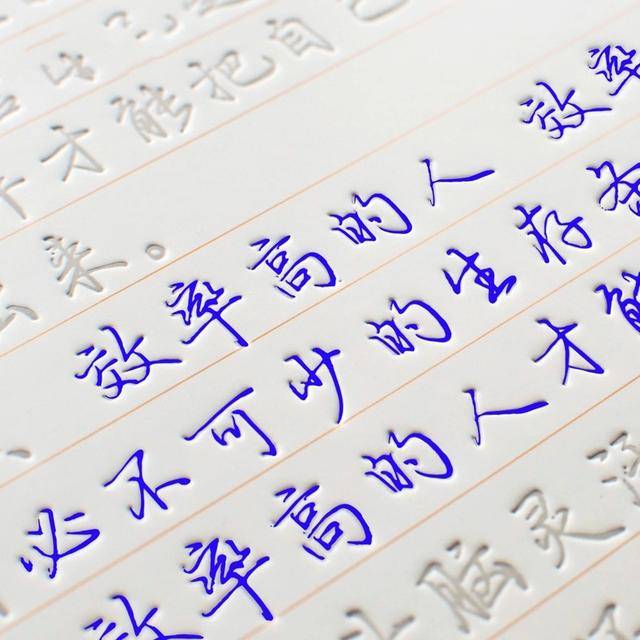 才能把自己
出来。
效率高的人 效率
必不可少的生存
效率高的人才能
脑灵活